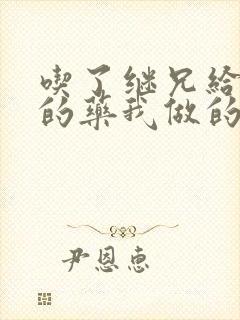 喫了继兄给
的藥我做的
尹恩惠